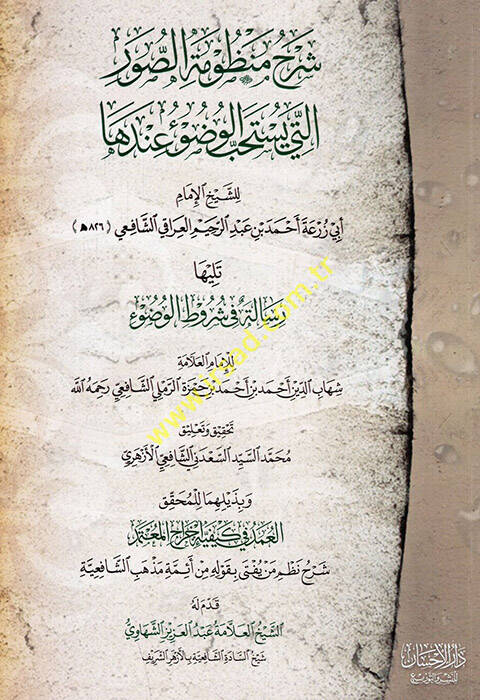 شرح منظومة الصور
التي يستحب الوضوء عندها
للشيخ الإمام
أبي زرعة أحمد بن عبد الرحيم العراقي الشافعي (٨٢٦ھ)
تليها
رسالة في شروط الوضوء
للإمام العلامة
شهاب الدين أحمد بن أحمد بن حمزة الرملي الشافعي رحمه الله
تحقيق وتعليق
محمد السيد السعدني الشافعي الأزهري
وبذيلهما للمحقق
العمد في كيفية إخراج المعتمد
شرح نظم من يفتى بقوله من أئمة مذهب الشافعية
قدم له
الشيخ العلامة عبد العزيز الشهاوي
شيخ السادة الشافعية بالأزهر الشريف
دار الإحسان
للنشر والتوزيع
www.irsad.com.tr